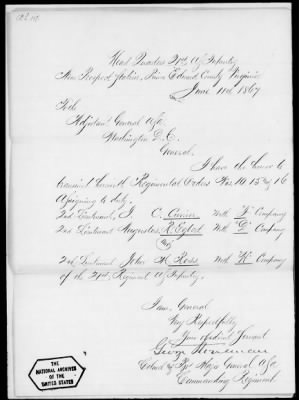 Head Quarters 21st U.S. Infantry
Prospect Station, Prince Edward County Virginia
June 11th 1867
To the
Adjutant General U.S.A.
Washington D.C.
General.
I have the honor to
transmit herewith Regimental Orders Nos. 14 15 & 16
Assigning to duty.
2nd Lieutenant, J. C. with "F" Company
2nd Lieutenant Augustus R. Egbert with "G" Company
and
2nd Lieutenant John M. Ross with "K" Company
of the 21st Regiment U.S. Infantry.
I am, General
Very Respectfully
Your obedient Servant
George Stoneman
Colonel & Bvt Major General U.S.A.
Commanding Regiment
THE
NATIONAL ARCHIVES
OF THE
UNITED STATES